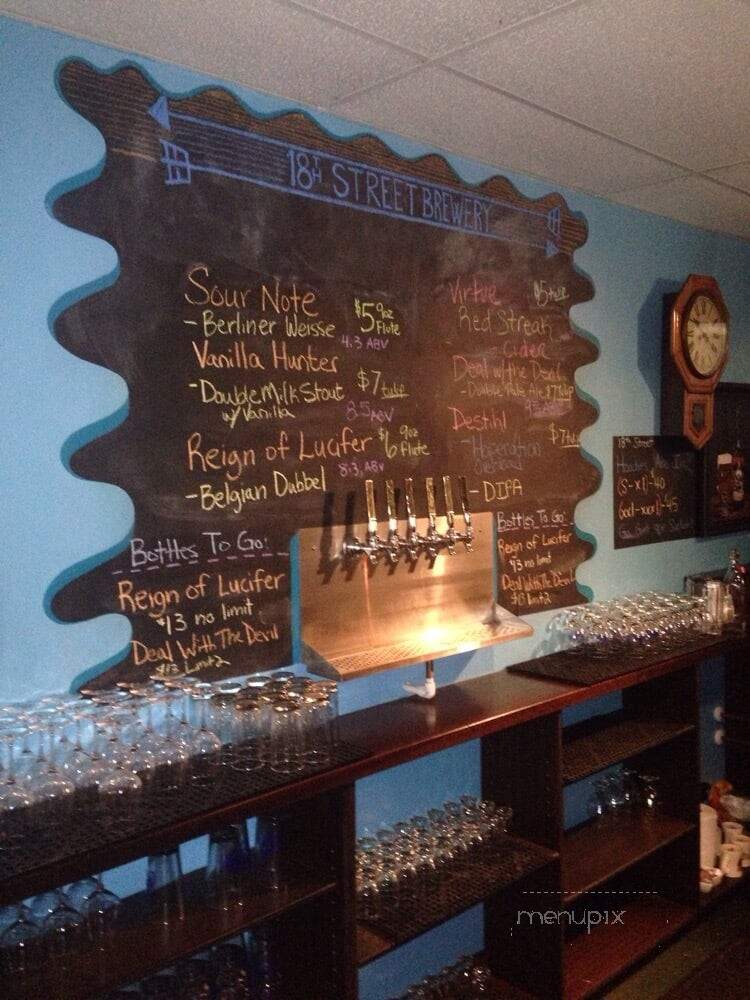 18TH STREET BREWERY
Sour Note
- Berliner Weisse $5 9oz Flute
4.3 ABV
Vanilla Hunter
- Double Milk Stout $7 tulip
w/ Vanilla 8.5 ABV
Reign of Lucifer $6 9oz Flute
- Belgian Dubbel 8.3, ABV
Virtue $5 tulip
Red Streak
Cider
Deal w/ the Devil
- Double Pale Ale $7 tulip
Destihl $7
- DIPA
Bottles To Go:
Reign of Lucifer
$13 no limit
Deal With The Devil
$13 Limit 2
Bottles To Go:
Reign of Lucifer
$13 no limit
Deal With The Devil
$13 limit 2
18th Street
(S-xl)-40
menupix